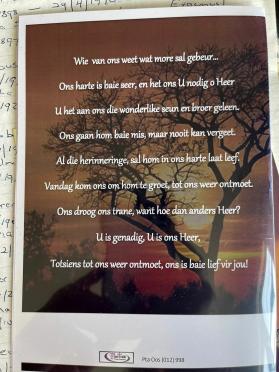 Wie van ons weet wat more sal gebeur...
Ons harte is baie seer, en het ons U nodig o Heer
U het aan ons die wonderlike seun en broer geleen.
Ons gaan hom baie mis, maar nooit kan vergeet.
Al die herinneringe, sal hom in ons harte laat leef.
Vandag kom ons om hom te groet, tot ons weer ontmoet.
Ons droog ons trane, want hoe dan anders Heer?
U is genadig, U is ons Heer,
Totsiens tot ons weer ontmoet, ons is baie lief vir jou!
Pta Oos (012) 998